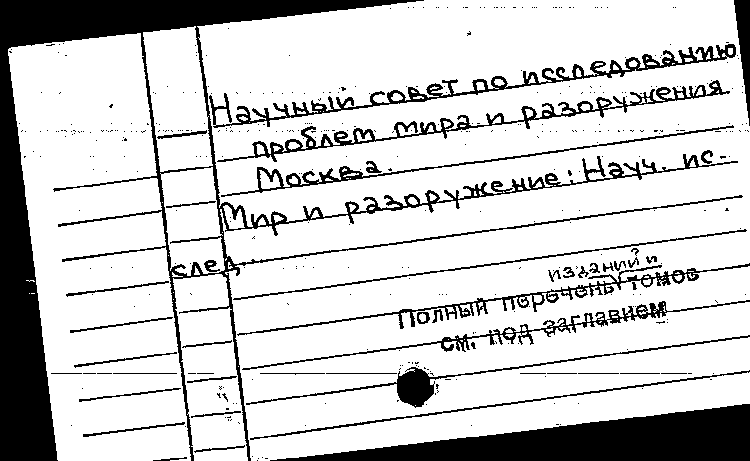 Научный совет по исследованию
проблем мира и разоружения
Москва.
Мир и разоружение: Науч. ис-
след...
изданий и
Полный перечень томов
см. под заглавием